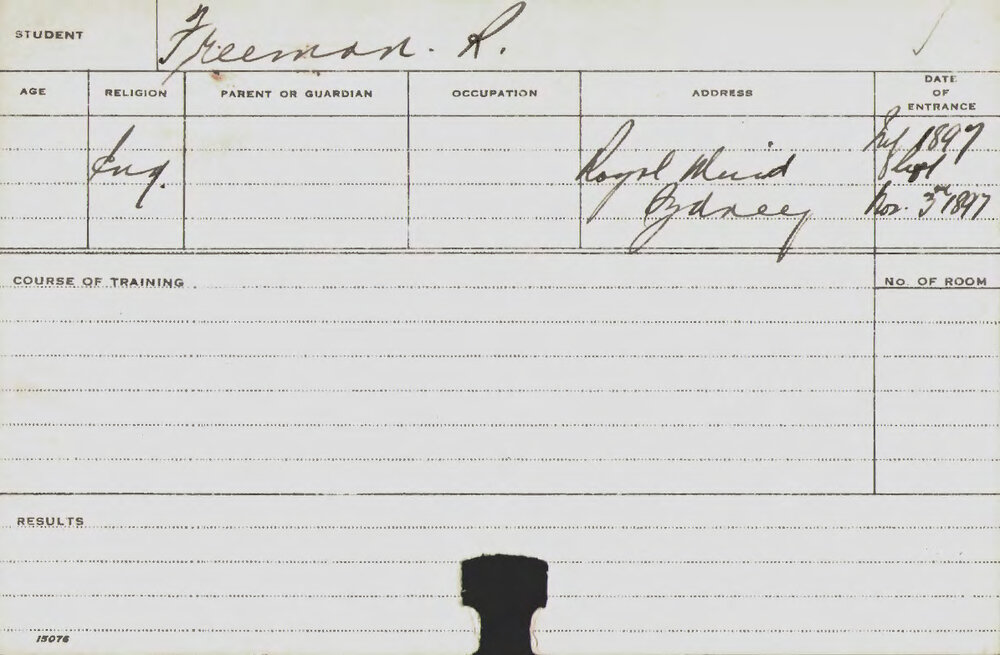 STUDENT Freeman. R.
AGE RELIGION PARENT OR GUARDIAN OCCUPATION ADDRESS DATE OF ENTRANCE
1897
Eng. Royal
Sydney Nov. 3rd 1897
COURSE OF TRAINING NO. OF ROOM
RESULTS
15076